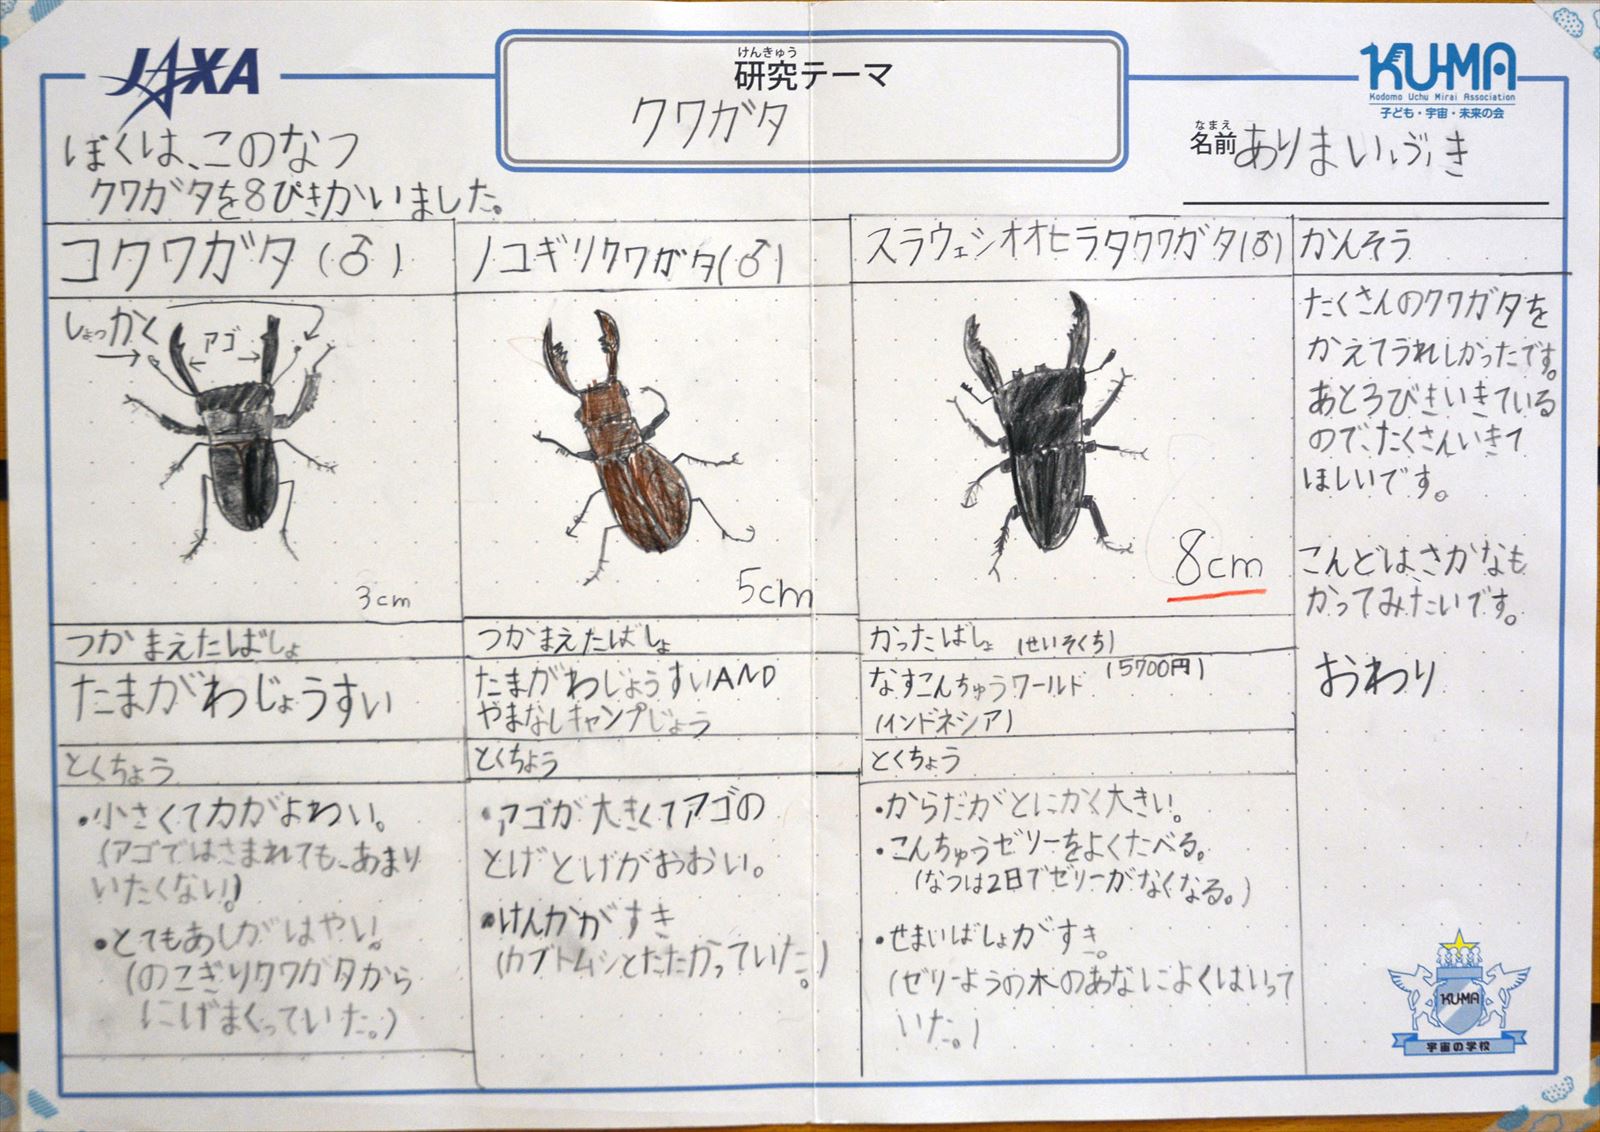 JAXA
けんきゅう
研究テーマ
クワガタ
KU-MA
Kodomo Uchu Mirai Association
子ども・宇宙・未来の会
なまえ
名前 ありまいぶき
ぼくは、このなつ
クワガタを8ぴきかいました。
コクワガタ(♂)
しょっかく
アゴ
3cm
つかまえたばしょ
たまがわじょうすい
とくちょう
・小さくて力がよわい。
(アゴではさまれても、あまり
いたくない。)
・とてもあしがはやい。
(のこぎりクワガタから
にげまくっていた。)
ノコギリクワガタ(♂)
5cm
つかまえたばしょ
たまがわじょうすいAND
やまなしキャンプじょう
とくちょう
・アゴが大きくてアゴの
とげとげがおおい。
・けんかがすき
(カブトムシとたたかっていた。)
スラウェシオオヒラタクワガタ(♂)
8cm
かったばしょ (せいそくち)
なすこんちゅうワールド (5700円)
(インドネシア)
とくちょう
・からだがとにかく大きい。
・こんちゅうゼリーをよくたべる。
(なつは2日でゼリーがなくなる。)
・せまいばしょがすき。
(ゼリーようの木のあなによくはいって
いた。)
かんそう
たくさんのクワガタを
かえてうれしかったです。
あと3びきいきている
ので、たくさんいきて
ほしいです。
こんどはさかなも
かってみたいです。
おわり
KU-MA
宇宙の学校